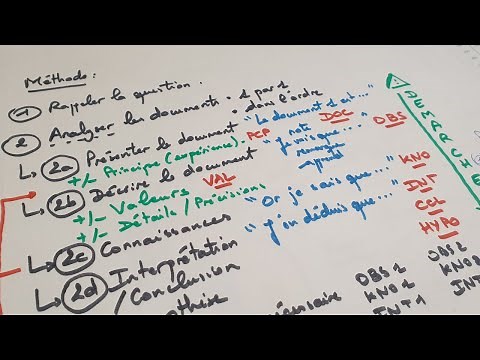 Méthode :
① Rappeler la question.
② Analyser les documents 1 par 1 dans l'ordre
↳ 2a Présenter le document "Le document 1 est..." DOC
+/- Principe (expérience) PCP
↳ 2b Décrire le document "Je vois que..." DBS
note
remarque
prend
+/- Valeurs VAL
+/- Détails / Précisions
↳ 2c Connaissances "Or je sais que..." KNO
↳ 2d Interprétation "J'en déduis que..." INT
/ Conclusion CCL
HYPO
DBS 1 DBS 2
KNO 1 KNO 2
INT 1 INT
DEMARCHE